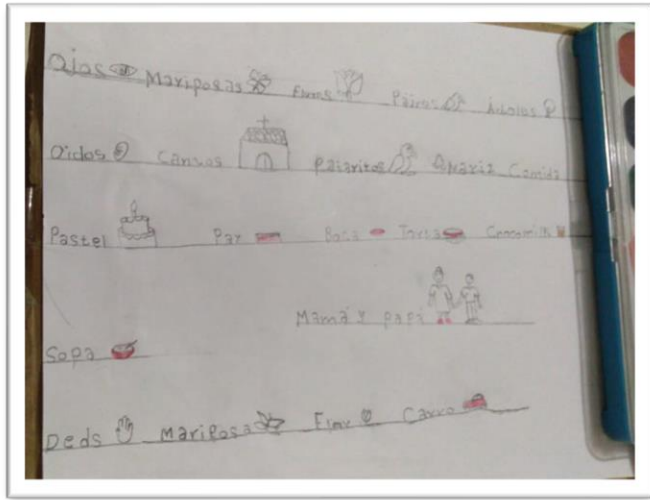 Ojos Mariposas Flores Pájaros Árboles
Oídos Cansos Pajaritos María Comida
Pastel Pay Boca Torta
Mamá y papá
Sopa
Deds Mariposa Carro